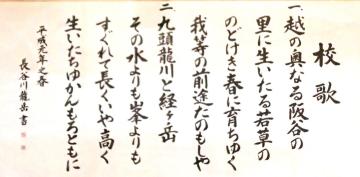 校歌
一、越の奥なる阪谷の
里に生いたる若草の
のどけき春に育ちゆく
我等の前途たのもしや
二、九頭龍川と経ヶ岳
その水よりも峯よりも
すぐれて長くいや高く
生いたちゆかんもろともに
平成元年之春
長谷川龍岳書